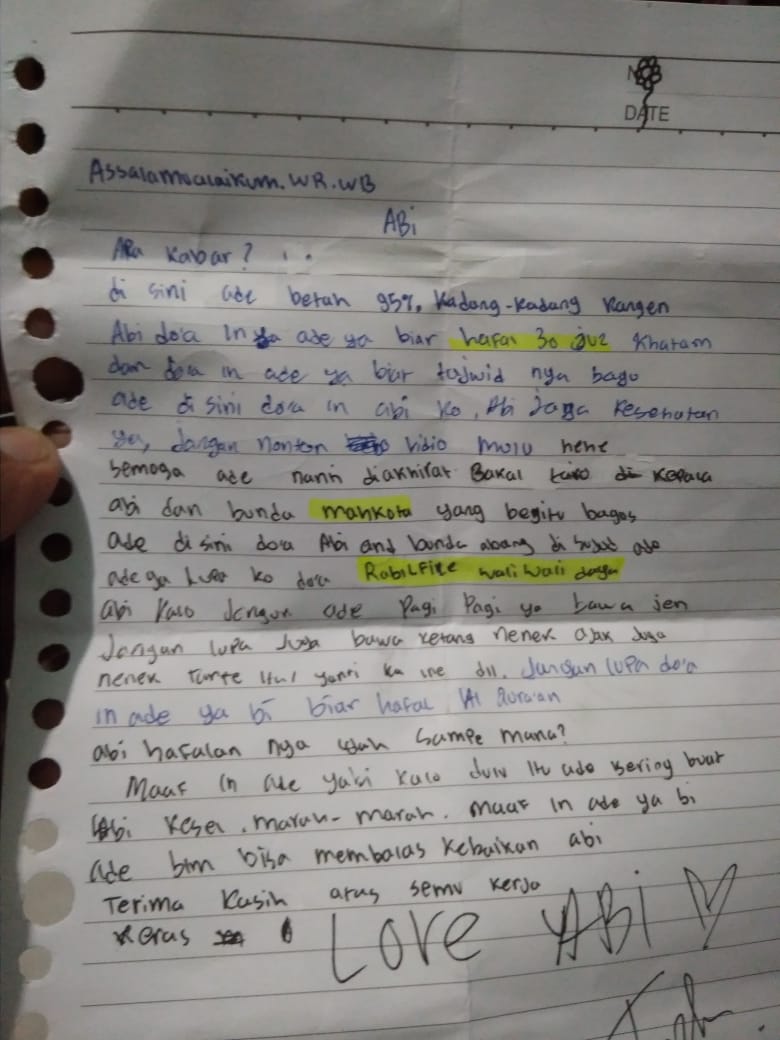 DATE
Assalamualaikum.WR.WB
ABi
APa kabar?
di sini ade betah 95%, Kadang-Kadang kangen
Abi do'a in ya ade ya biar hafal 30 juz Khatam
dan do'a in ade ya biar tajwid nya bagu
ade di sini do'a in abi ko, Abi Jaga Kesehatan
ya, Jangan nonton vidio mulu hehe
semoga ade nanti diakhirat Bakal kepala
abi dan bunda mahkota yang begitu bagus
Ade di sini do'a Abi and bunda abang di ade
ade ga lupa ko do'a Wali Wali
abi Kalo Jenguk ade Pagi Pagi ya bawa jen
Jangan lupa Juga bawa nenek ajak Juga
nenek yanti ka ine dll. Jangan lupa do'a
in ade ya bi biar hafal Al Qura'an
abi hafalan nya udah sampe mana?
Maaf in ade ya bi kalo dulu itu ade sering buat
Abi Kesel, marah-marah. maaf in ade ya bi
ade blm bisa membalas kebaikan abi
Terima Kasih atas kerja
keras
Love ABi